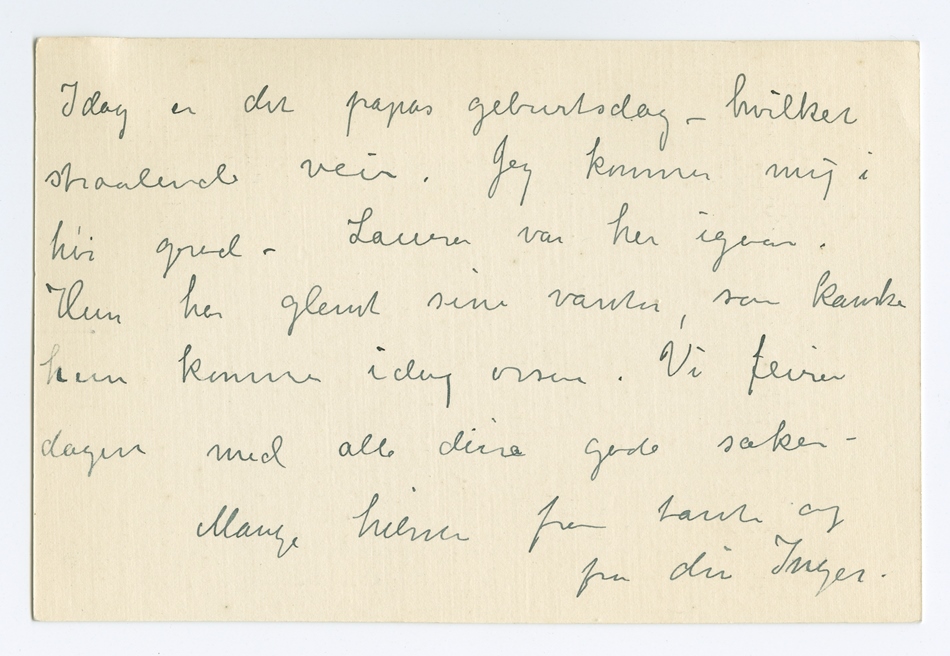 Idag er det papas geburtsdag – hvilket
straalende veir. Jeg kommer mig i
høi grad – Laura var her igaar.
Hun har glemt sine vanter, saa kanske
hun kommer idag ossaa. Vi feirer
dagen med alle dine gode saker –
Mange hilsner fra tante og
fra din Inger.